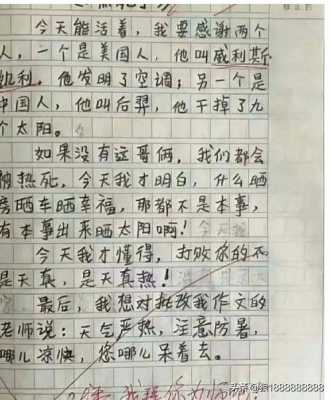 今天能活着，我要感谢两个
人，一个是美国人，他叫威利斯
凯利，他发明了空调；另一个是
中国人，他叫后羿，他干掉了九
个太阳。
如果没有这哥俩，我们都会
被热死，今天我才明白，什么晒
房晒车晒幸福，那都不是本事，
有本事出来晒太阳啊！
今天我才懂得，打败你的不
是天真，是天真热！
最后，我想对批改我作文的
老师说：天气严热，注意防暑，
哪儿凉快，您哪儿呆着去。
我拜你为师吧
头条@猿1888888888